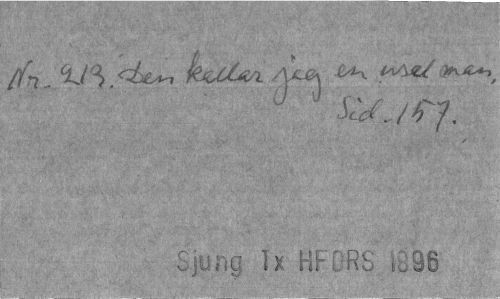 Nr. 213. Den kallar jag en usel man,
Sid. 157.
Sjung Tx HFORS 1896